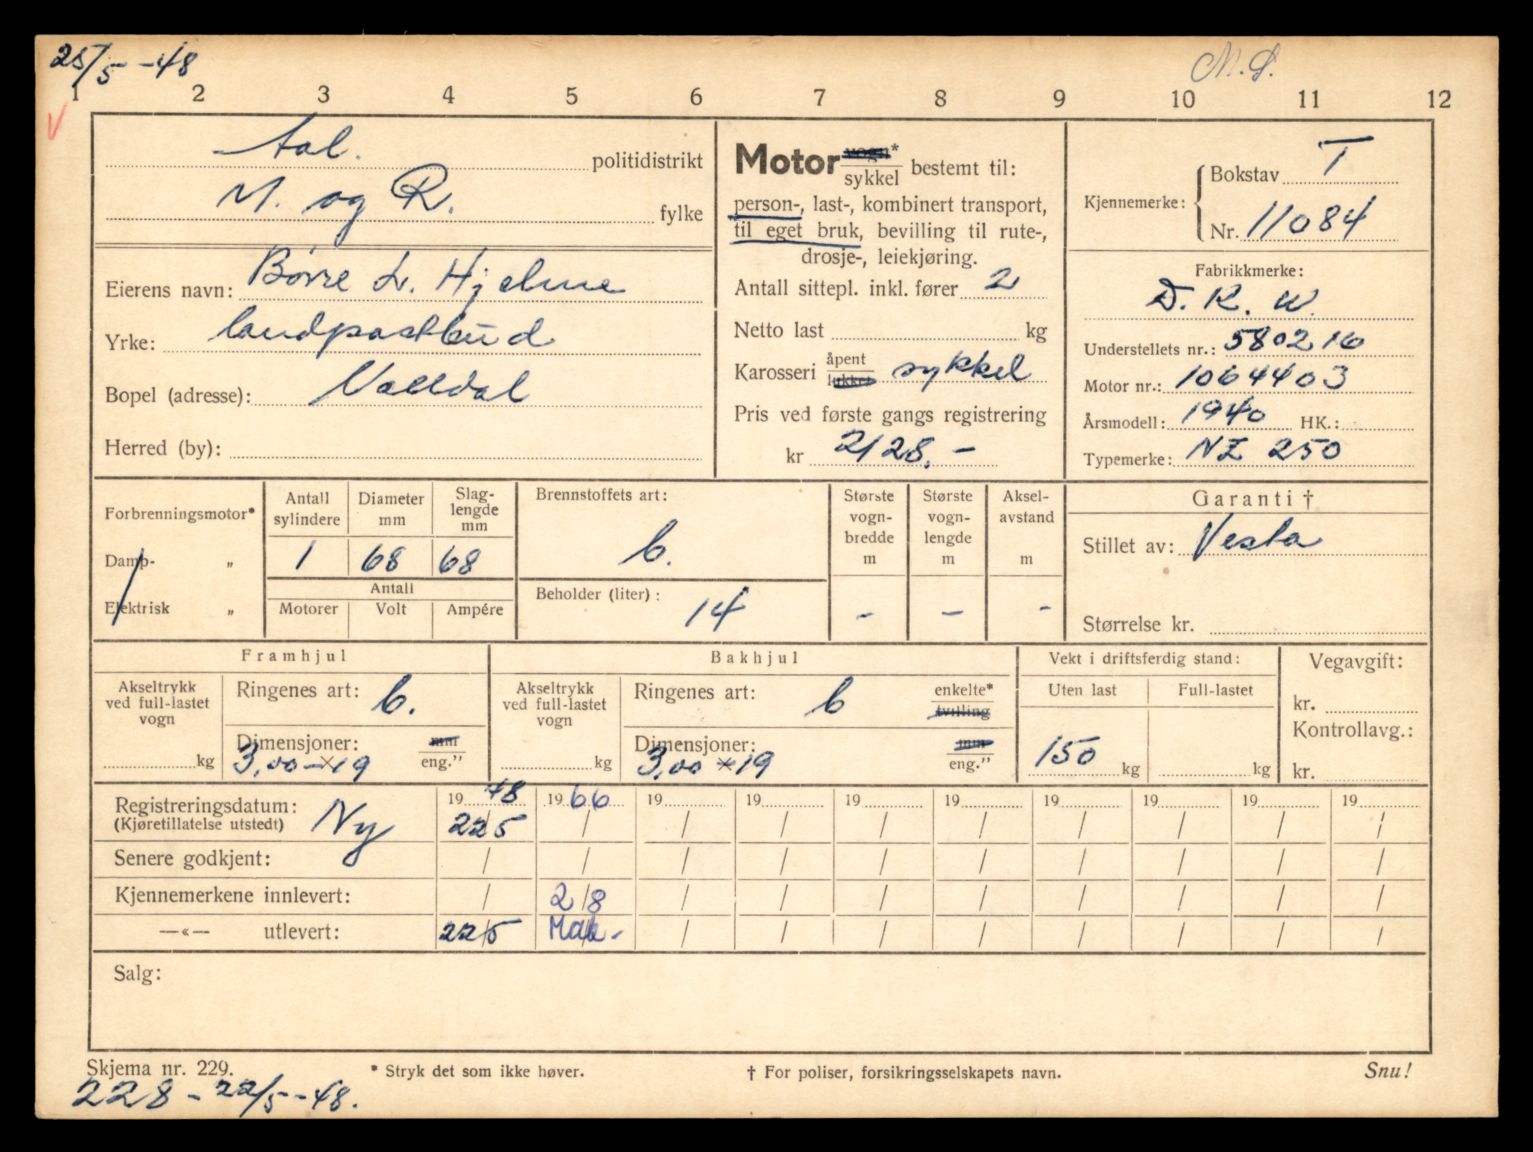 25/5-48
M.S.
1 2 3 4 5 6 7 8 9 10 11 12
Aal. politidistrikt
M. og R. fylke
Eierens navn: Børre L. Hjelme
Yrke: landpostbud
Bopel (adresse): Valldal
Herred (by):
Motor vogn* sykkel bestemt til:
person-, last-, kombinert transport,
til eget bruk, bevilling til rute-,
drosje-, leiekjøring.
Antall sittepl. inkl. fører 2
Netto last kg
Karosseri åpent lukket sykkel
Pris ved første gangs registrering
kr 2128.-
Kjennemerke: Bokstav T
Nr. 11084
Fabrikkmerke:
D.K.W.
Understellets nr.: 580216
Motor nr.: 1064403
Årsmodell: 1940 HK.:
Typemerke: NZ 250
Forbrenningsmotor*
Damp- „
Elektrisk „
Antall sylindere Diameter mm Slag-lengde mm
1 68 68
Antall
Motorer Volt Ampére
Brennstoffets art:
b.
Beholder (liter): 14
Største vogn-bredde m Største vogn-lengde m Aksel-avstand m
- - -
Garanti †
Stillet av: Vesta
Størrelse kr.
Framhjul
Akseltrykk ved full-lastet vogn
kg
Ringenes art: b.
Dimensjoner: mm
3,00-×19 eng.”
Bakhjul
Akseltrykk ved full-lastet vogn
kg
Ringenes art: b enkelte* tvilling
Dimensjoner: mm
3,00×19 eng.”
Vekt i driftsferdig stand:
Uten last Full-lastet
150 kg kg
Vegavgift:
kr.
Kontrollavg.:
kr.
Registreringsdatum: Ny 1948 1966 19 19 19 19 19 19 19 19
(Kjøretillatelse utstedt) 22/5 / / / / / / / / /
Senere godkjent: / / / / / / / / / /
Kjennemerkene innlevert: / 2/8 / / / / / / / /
—«— utlevert: 22/5 Mak- / / / / / / / /
Salg:
Skjema nr. 229. * Stryk det som ikke høver. † For poliser, forsikringsselskapets navn. Snu!
228-22/5-48.